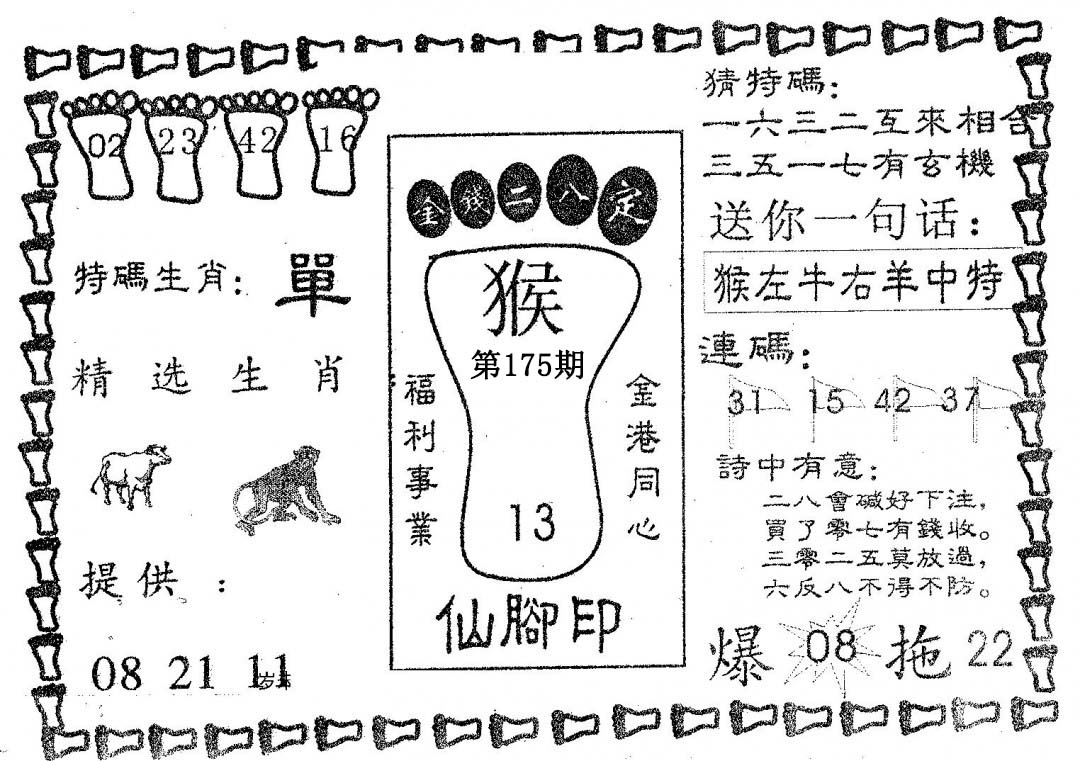 02 23 42 16
特碼生肖：單
精选生肖
提供：
08 21 11
金錢二八定
猴
第175期
13
福利事業
金港同心
仙腳印
猜特碼：
一六三二互來相合
三五一七有玄機
送你一句话：
猴左牛右羊中特
連碼：
31 15 42 37
詩中有意：
二八會碱好下注，
買了零七有錢收。
三零二五莫放過，
六反八不得不防。
爆 08 拖 22